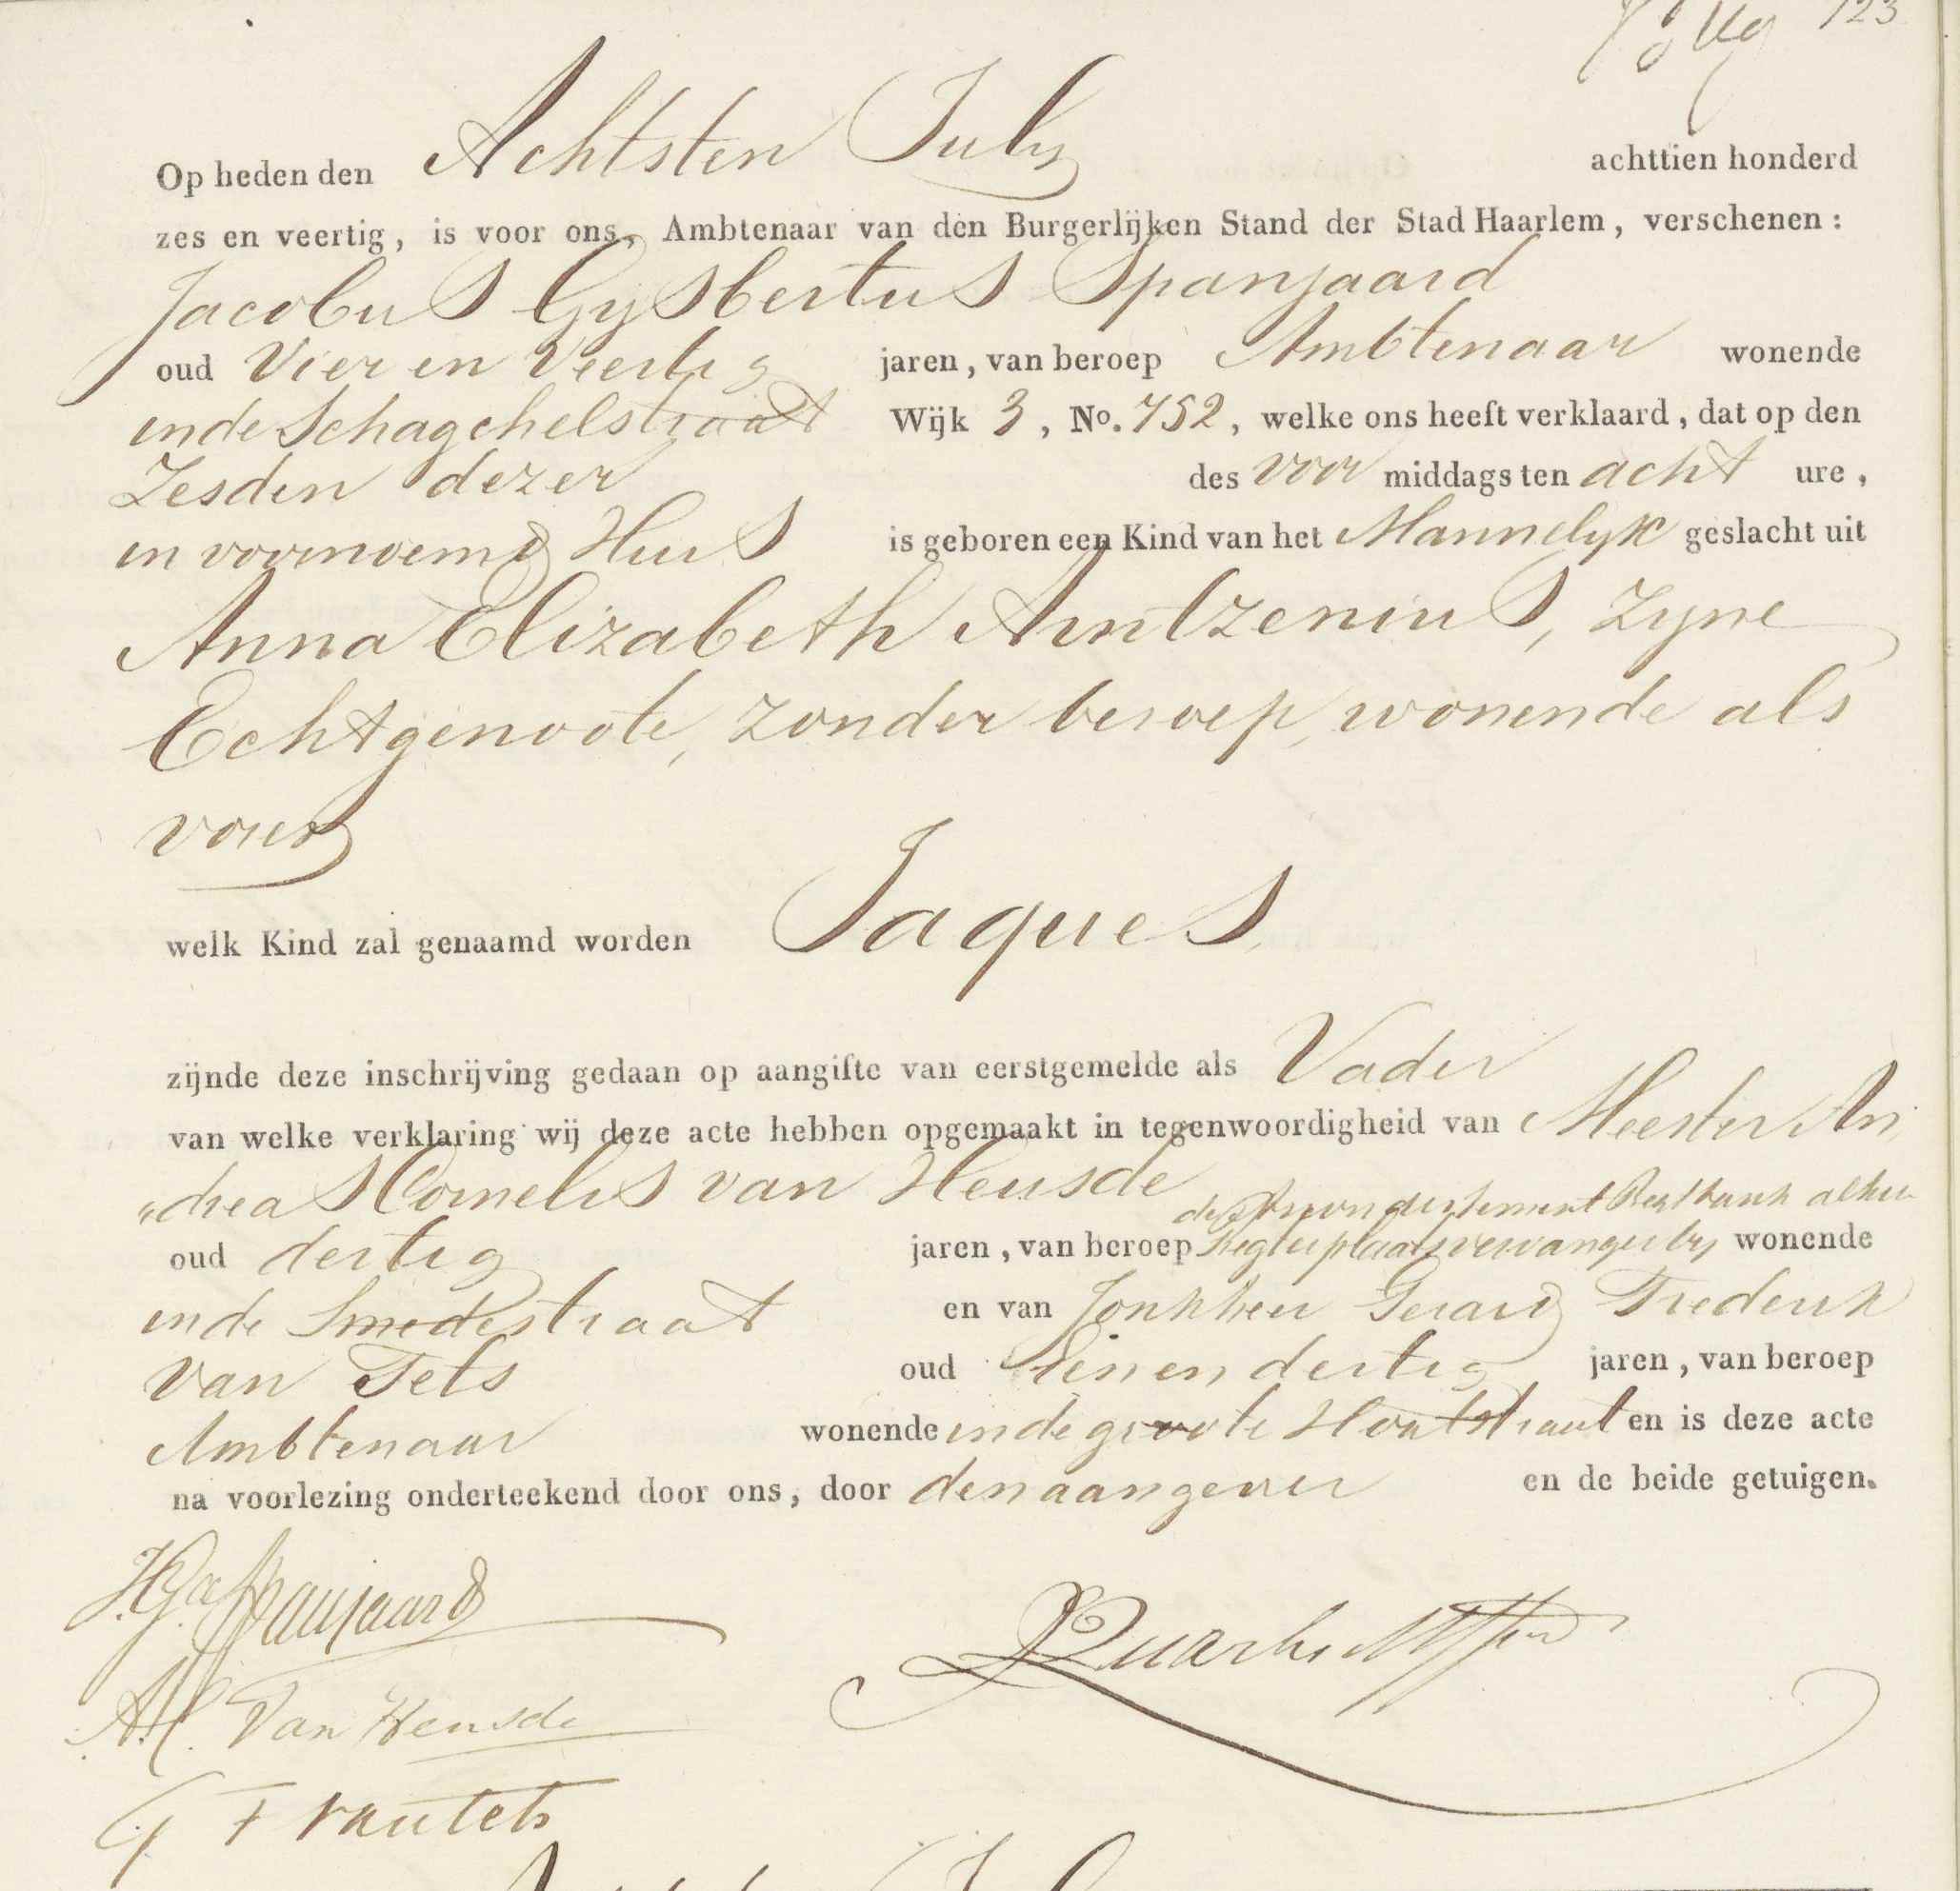 123
Op heden den Achtsten July achttien honderd
zes en veertig, is voor ons, Ambtenaar van den Burgerlijken Stand der Stad Haarlem, verschenen:
Jacobus Gysbertus Spanjaard
oud Vier en Veertig jaren, van beroep Ambtenaar wonende
in de Schagchelstraat Wijk 3, No. 752, welke ons heeft verklaard, dat op den
Zesden dezer des voor middags ten acht ure,
in voornoemd Huis is geboren een Kind van het Mannelyk geslacht uit
Anna Elizabeth Arntzenius, zyne
Echtgenoote, zonder beroep, wonende als
voren
welk Kind zal genaamd worden Jaques
zijnde deze inschrijving gedaan op aangifte van eerstgemelde als Vader
van welke verklaring wij deze acte hebben opgemaakt in tegenwoordigheid van Meester An
„dreas Cornelis van Heusde
de Arrondissement Regtbank alhier
oud dertig jaren, van beroep Regter plaatsvervanger by wonende
in de Smedestraat en van Jonkheer Gerard Frederik
van Tets oud Eenendertig jaren, van beroep
Ambtenaar wonende in de groote Houtstraat en is deze acte
na voorlezing onderteekend door ons, door den aangever en de beide getuigen.
J. G. Spanjaard
A. C. Van Heusde
G F van Tets